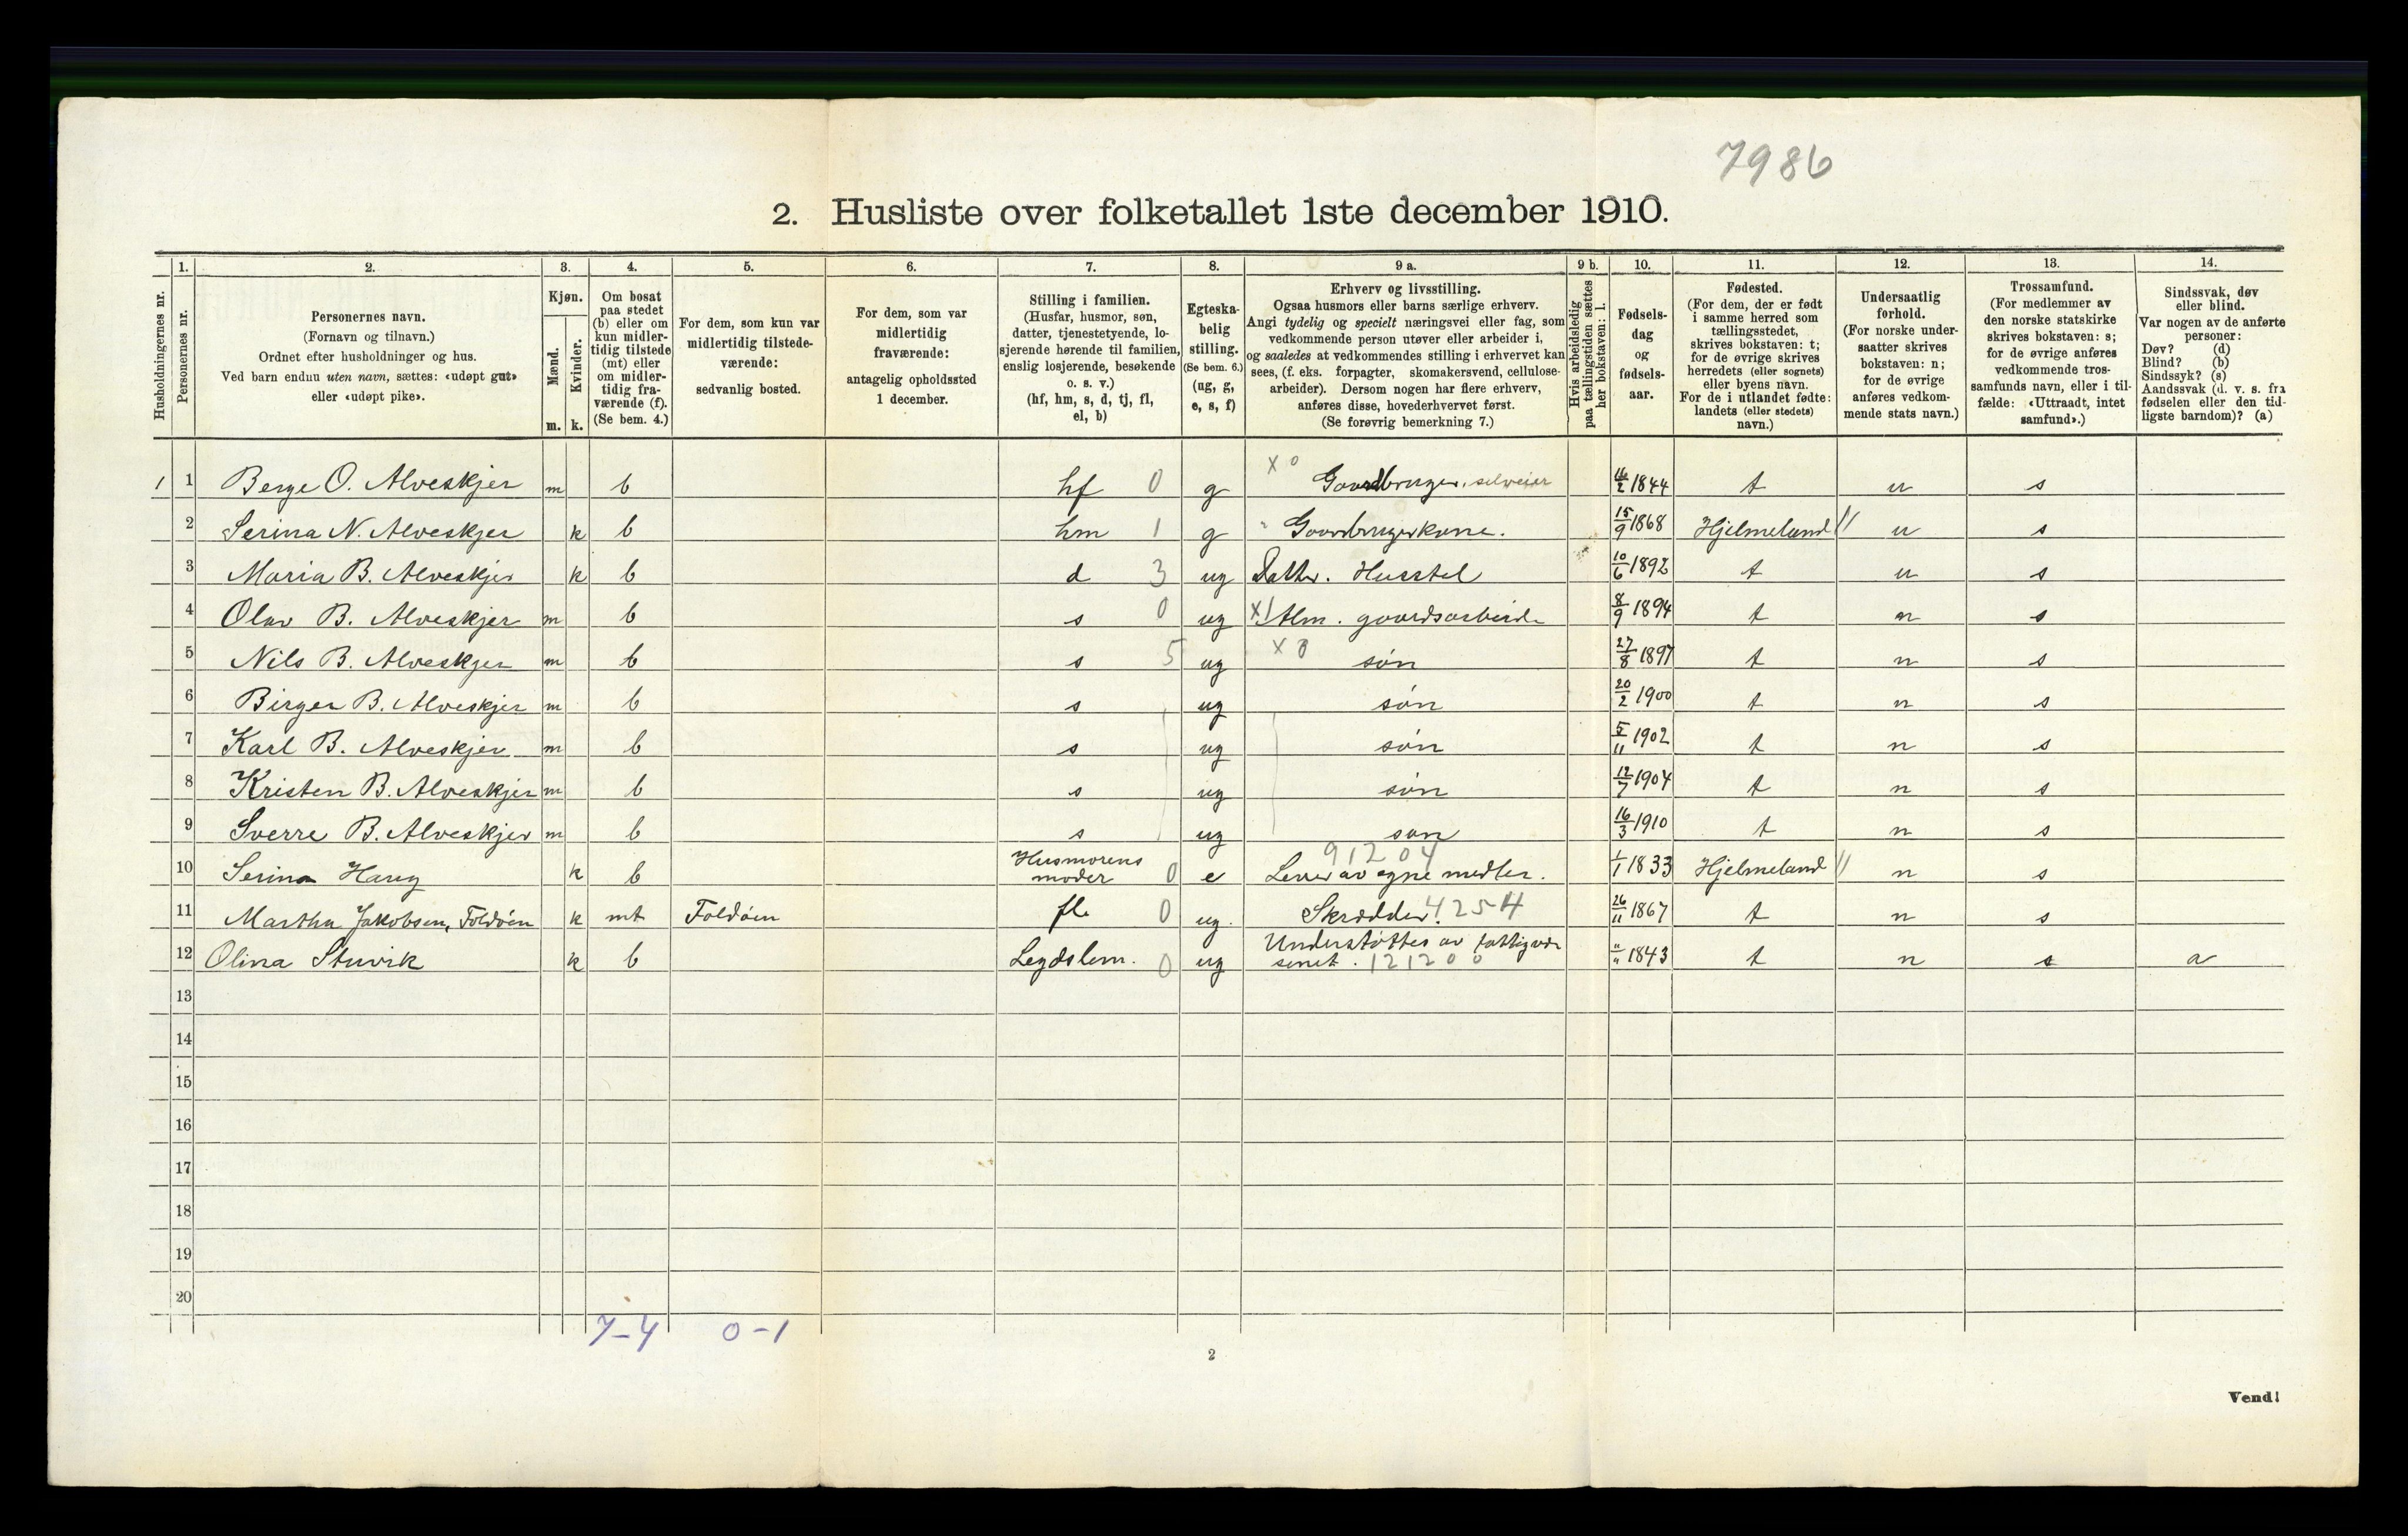 7986
2. Husliste over folketallet 1ste december 1910.
Husholdningernes nr.
1.
Personernes nr.
2.
Personernes navn.
(Fornavn og tilnavn.)
Ordnet efter husholdninger og hus.
Ved barn endnu uten navn, sættes: «udøpt gut»
eller «udøpt pike».
3.
Kjøn.
Mænd.
Kvinder.
m. k.
4.
Om bosat
paa stedet
(b) eller om
kun midler-
tidig tilstede
(mt) eller
om midler-
tidig fra-
værende (f).
(Se bem. 4.)
5.
For dem, som kun var
midlertidig tilstede-
værende:
sedvanlig bosted.
6.
For dem, som var
midlertidig
fraværende:
antagelig opholdssted
1 december.
7.
Stilling i familien.
(Husfar, husmor, søn,
datter, tjenestetyende, lo-
sjerende hørende til familien,
enslig losjerende, besøkende
o. s. v.)
(hf, hm, s, d, tj, fl,
el, b)
8.
Egteska-
belig
stilling.
(Se bem. 6.)
(ug, g,
e, s, f)
9 a.
Erhverv og livsstilling.
Ogsaa husmors eller barns særlige erhverv.
Angi tydelig og specielt næringsvei eller fag, som
vedkommende person utøver eller arbeider i,
og saaledes at vedkommendes stilling i erhvervet kan
sees, (f. eks. forpagter, skomakersvend, cellulose-
arbeider). Dersom nogen har flere erhverv,
anføres disse, hovederhvervet først.
(Se forøvrig bemerkning 7.)
9 b.
Hvis arbeidsledig
paa tællingstiden sættes
her bokstaven: l.
10.
Fødsels-
dag
og
fødsels-
aar.
11.
Fødested.
(For dem, der er født
i samme herred som
tællingsstedet,
skrives bokstaven: t;
for de øvrige skrives
herredets (eller sognets)
eller byens navn.
For de i utlandet fødte:
landets (eller stedets)
navn.)
12.
Undersaatlig
forhold.
(For norske under-
saatter skrives
bokstaven: n;
for de øvrige
anføres vedkom-
mende stats navn.)
13.
Trossamfund.
(For medlemmer av
den norske statskirke
skrives bokstaven: s;
for de øvrige anføres
vedkommende tros-
samfunds navn, eller i til-
fælde: «Uttraadt, intet
samfund».)
14.
Sindssvak, døv
eller blind.
Var nogen av de anførte
personer:
Døv? (d)
Blind? (b)
Sindssyk? (s)
Aandssvak (d. v. s. fra
fødselen eller den tid-
ligste barndom)? (a)
1 1 Berge O. Alveskjer m b hf 0 g x 0 Gaardbruger, selveier 16/2 1844 t n s
2 Serina N. Alveskjer k b hm 1 g Gaardbrugerkone. 15/9 1868 Hjelmeland // n s
3 Maria B. Alveskjer k b d 3 ug Datter. Husstel 10/6 1892 t n s
4 Olav B. Alveskjer m b s 0 ug x1 Alm. gaardsarbeide 8/9 1894 t n s
5 Nils B. Alveskjer m b s 5 ug x 0 søn 27/8 1897 t n s
6 Birger B. Alveskjer m b s ug søn 20/2 1900 t n s
7 Karl B. Alveskjer m b s ug søn 5/11 1902 t n s
8 Kristen B. Alveskjer m b s ug søn 12/7 1904 t n s
9 Sverre B. Alveskjer m b s ug søn 16/3 1910 t n s
10 Serina Haug k b Husmorens moder 0 e Lever av egne midler. 91204 1/1 1833 Hjelmeland // n s
11 Martha Jakobsen, Foldøen k mt Foldøen fl 0 ug. Skrædder. 4254 26/11 1867 t n s
12 Olina Stuvik k b Legdslem. 0 ug Understøttes av fattigvæsenet. 121200 "/" 1843 t n s a
13
14
15
16
17
18
19
20
7-4 0-1
2
Vend!